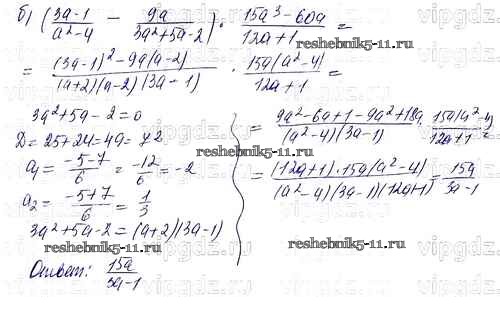 б) ((3a-1)/(a²-4) - 9a/(3a²+5a-2)) · (15a³-60a)/(12a+1) =
= ((3a-1)²-9a(a-2))/((a+2)(a-2)(3a-1)) · 15a(a²-4)/(12a+1) =
3a²+5a-2=0
D=25+24=49=7²
a₁ = (-5-7)/6 = -12/6 = -2
a₂ = (-5+7)/6 = 1/3
3a²+5a-2=(a+2)(3a-1)
Ответ: 15a/(3a-1)
= (9a²-6a+1-9a²+18a)/((a²-4)(3a-1)) · 15a(a²-4)/(12a+1) =
= ((12a+1)·15a(a²-4))/((a²-4)(3a-1)(12a+1)) = 15a/(3a-1)
reshebnik5-11.ru
reshebnik5-11.ru
reshebnik5-11.ru
reshebnik5-11.ru
reshebnik5-11.ru
vipgdz.ru